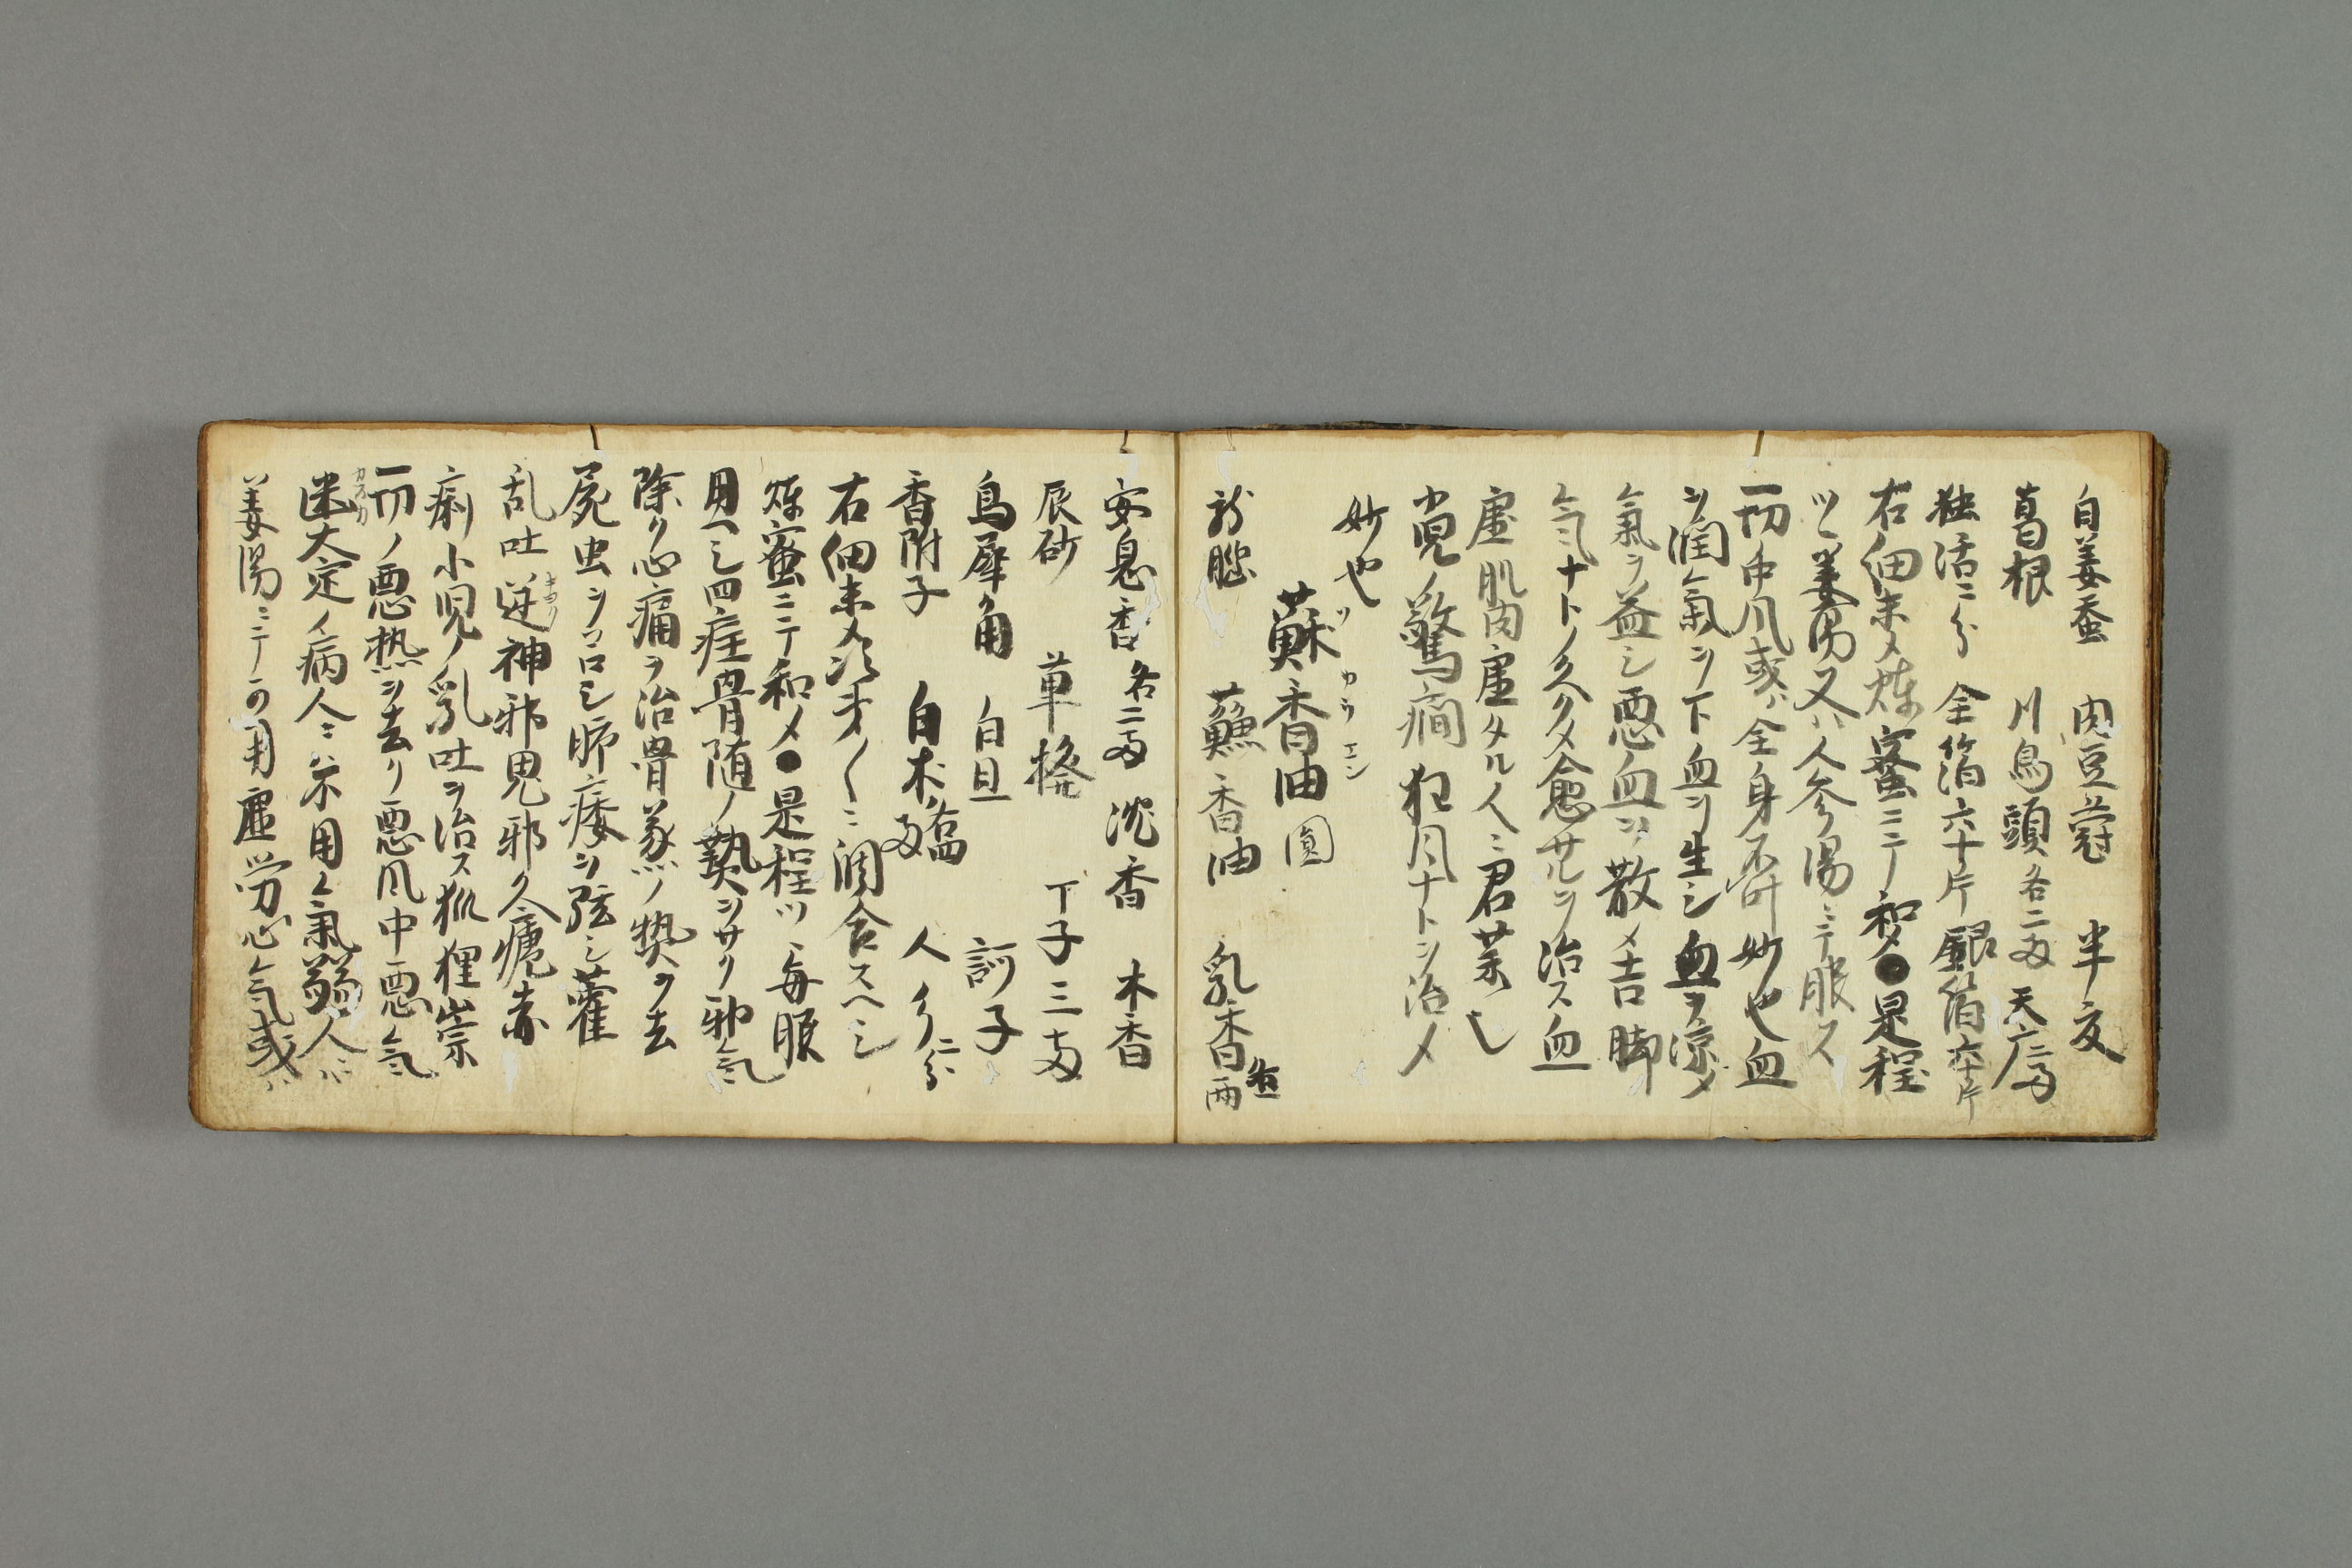 白姜蚕 肉豆蒄 半夏
葛根 川烏頭 各二両 天麻二両
独活二分 金箔六十片 銀箔六十片
右細末メ煉蜜ニテ和メ●是程
ツヽ姜湯又ハ人参湯ニテ服ス
一切中風或ハ全身不叶妙也血
ヲ潤氣ヲ下血ヲ生シ血ヲ涼メ
氣ヲ益シ悪血ヲ散メ吉脚
気ナトノ久クメ愈サルヲ治ス血
虚肌肉虚タルノ人ニ君薬也
小児ノ驚癇狂風ナトヲ治メ
妙也
蘇香油圓
ソ カウ エン
龍脳 蘓香油 乳香 各一両
安息香 各二両 沈香 木香
辰砂 蓽撥 丁子三両
烏犀角 白旦 訶子
香附子 白朮 各四両 人参二分
右細末メ次才〱ニ調合スヘシ
煉蜜ニテ和メ●是程ツヽ毎服
用ヘシ四症骨随ノ熱ヲサリ邪気
除ク心痛ヲ治骨蒸ノ熱ヲ去
屍虫ヲコロシ肺痿ヲ 霍
乱吐逆神邪鬼邪久瘧赤
痢小児ノ乳吐ヲ治ス狐狸祟
一切ノ悪热ヲ去リ悪風中悪気
大定ノ病人ニハ不用氣弱人ニハ
姜湯ニテ可用虚労心気或ハ